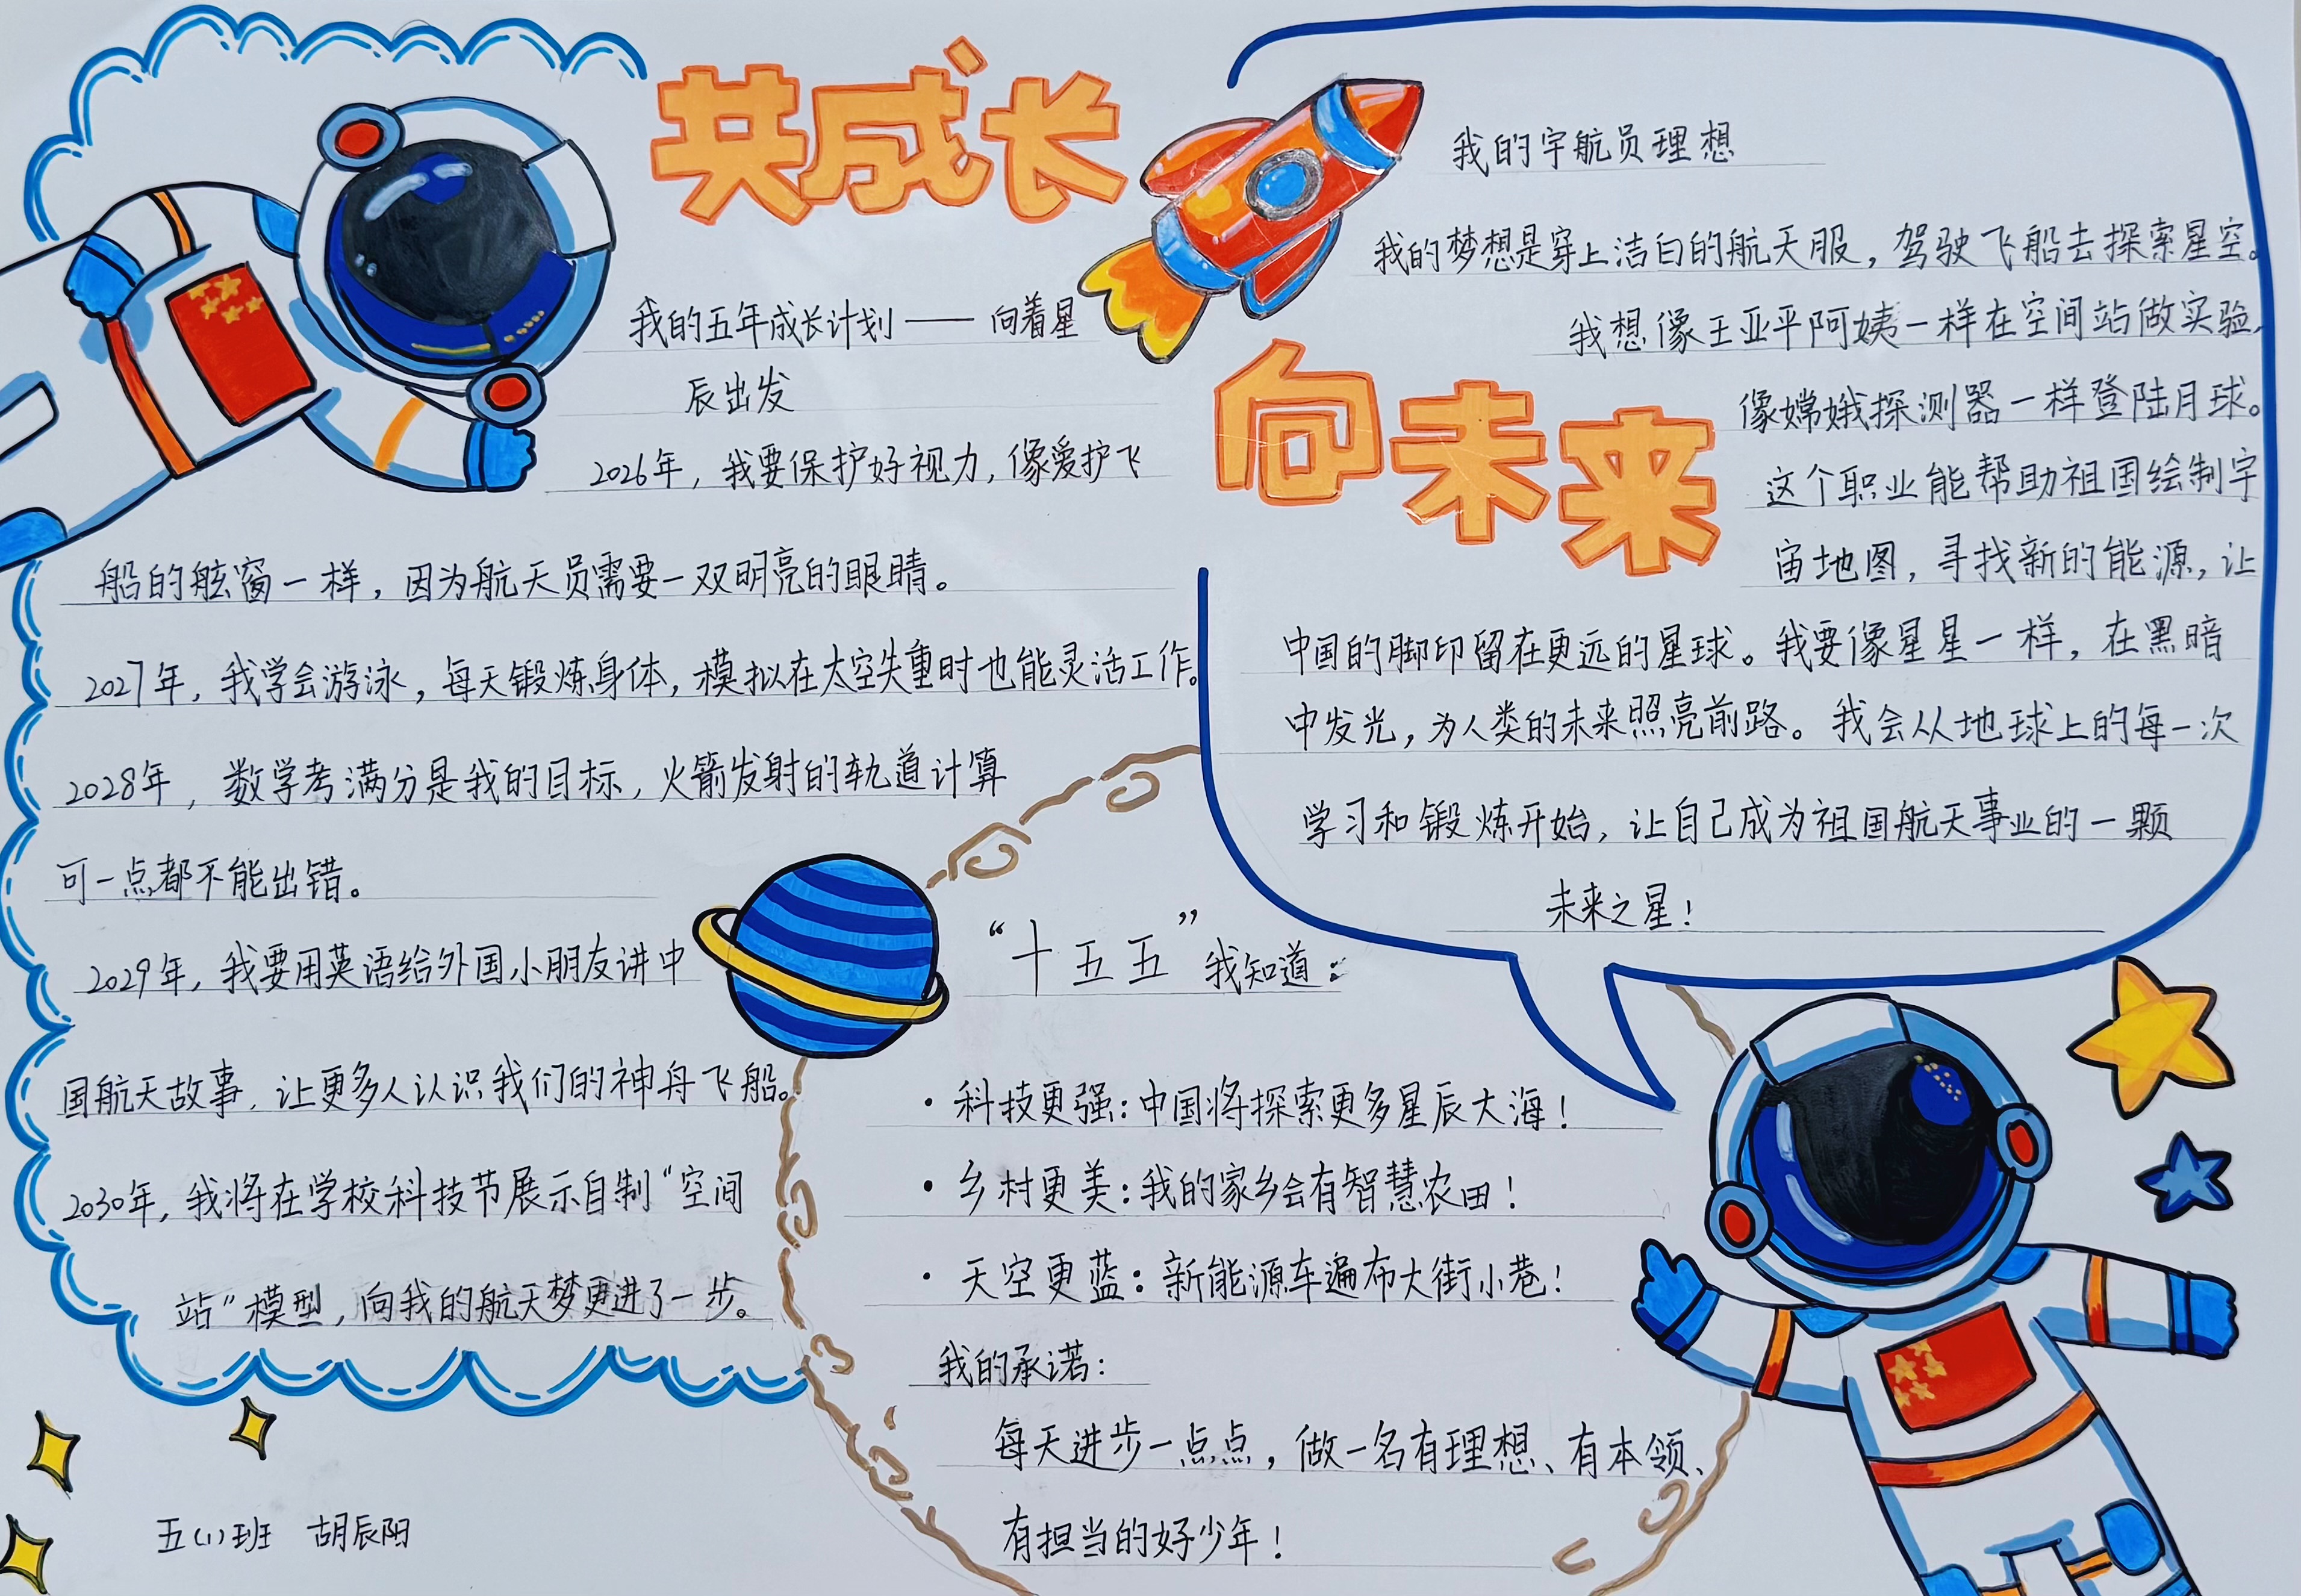 共成长
向未来
我的五年成长计划——向着星
辰出发
2026年，我要保护好视力，像爱护飞
船的舷窗一样，因为航天员需要一双明亮的眼睛。
2027年，我学会游泳，每天锻炼身体，模拟在太空失重时也能灵活工作。
2028年，数学考满分是我的目标，火箭发射的轨道计算
可一点都不能出错。
2029年，我要用英语给外国小朋友讲中
国航天故事，让更多人认识我们的神舟飞船。
2030年，我将在学校科技节展示自制“空间
站”模型，向我的航天梦更进了一步。
五(1)班 胡辰阳
我的宇航员理想
我的梦想是穿上洁白的航天服，驾驶飞船去探索星空。
我想像王亚平阿姨一样在空间站做实验，
像嫦娥探测器一样登陆月球。
这个职业能帮助祖国绘制宇
宙地图，寻找新的能源，让
中国的脚印留在更远的星球。我要像星星一样，在黑暗
中发光，为人类的未来照亮前路。我会从地球上的每一次
学习和锻炼开始，让自己成为祖国航天事业的一颗
未来之星！
“十五五”我知道：
·科技更强：中国将探索更多星辰大海！
·乡村更美：我的家乡会有智慧农田！
·天空更蓝：新能源车遍布大街小巷！
我的承诺：
每天进步一点点，做一名有理想、有本领、
有担当的好少年！